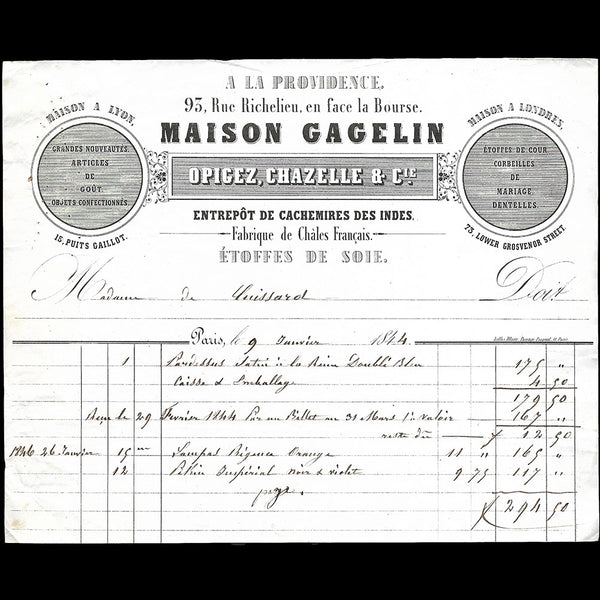 A LA PROVIDENCE.
93, Rue Richelieu, en face la Bourse.
MAISON GAGELIN
OPIGEZ, CHAZELLE & Cie
ENTREPÔT DE CACHEMIRES DES INDES.
Fabrique de Châles Français.
ÉTOFFES DE SOIE.
MAISON A LYON.
GRANDES NOUVEAUTÉS.
ARTICLES
DE
GOÛT.
OBJETS CONFECTIONNÉS.
15, PUITS GAILLOT.
MAISON A LONDRES.
ÉTOFFES DE COUR
CORBEILLES
DE
MARIAGE
DENTELLES.
73, LOWER GROSVENOR STREET.
Madame de Cuissard Doit
Paris, le 9 Janvier 1844
1 Pardessus Satin à la Reine Doublé Bleu 175 "
Caisse & Emballage 4 50
179 50
Reçu le 29 Février 1844 Par un Billet au 31 Mars Pr valoir 167 "
reste dû 12 50
1846 26 Janvier 15 m Lampas Régence Orange 11 " 165 "
12 Pékin Impérial Noir & violet 9 75 117 "
294 50